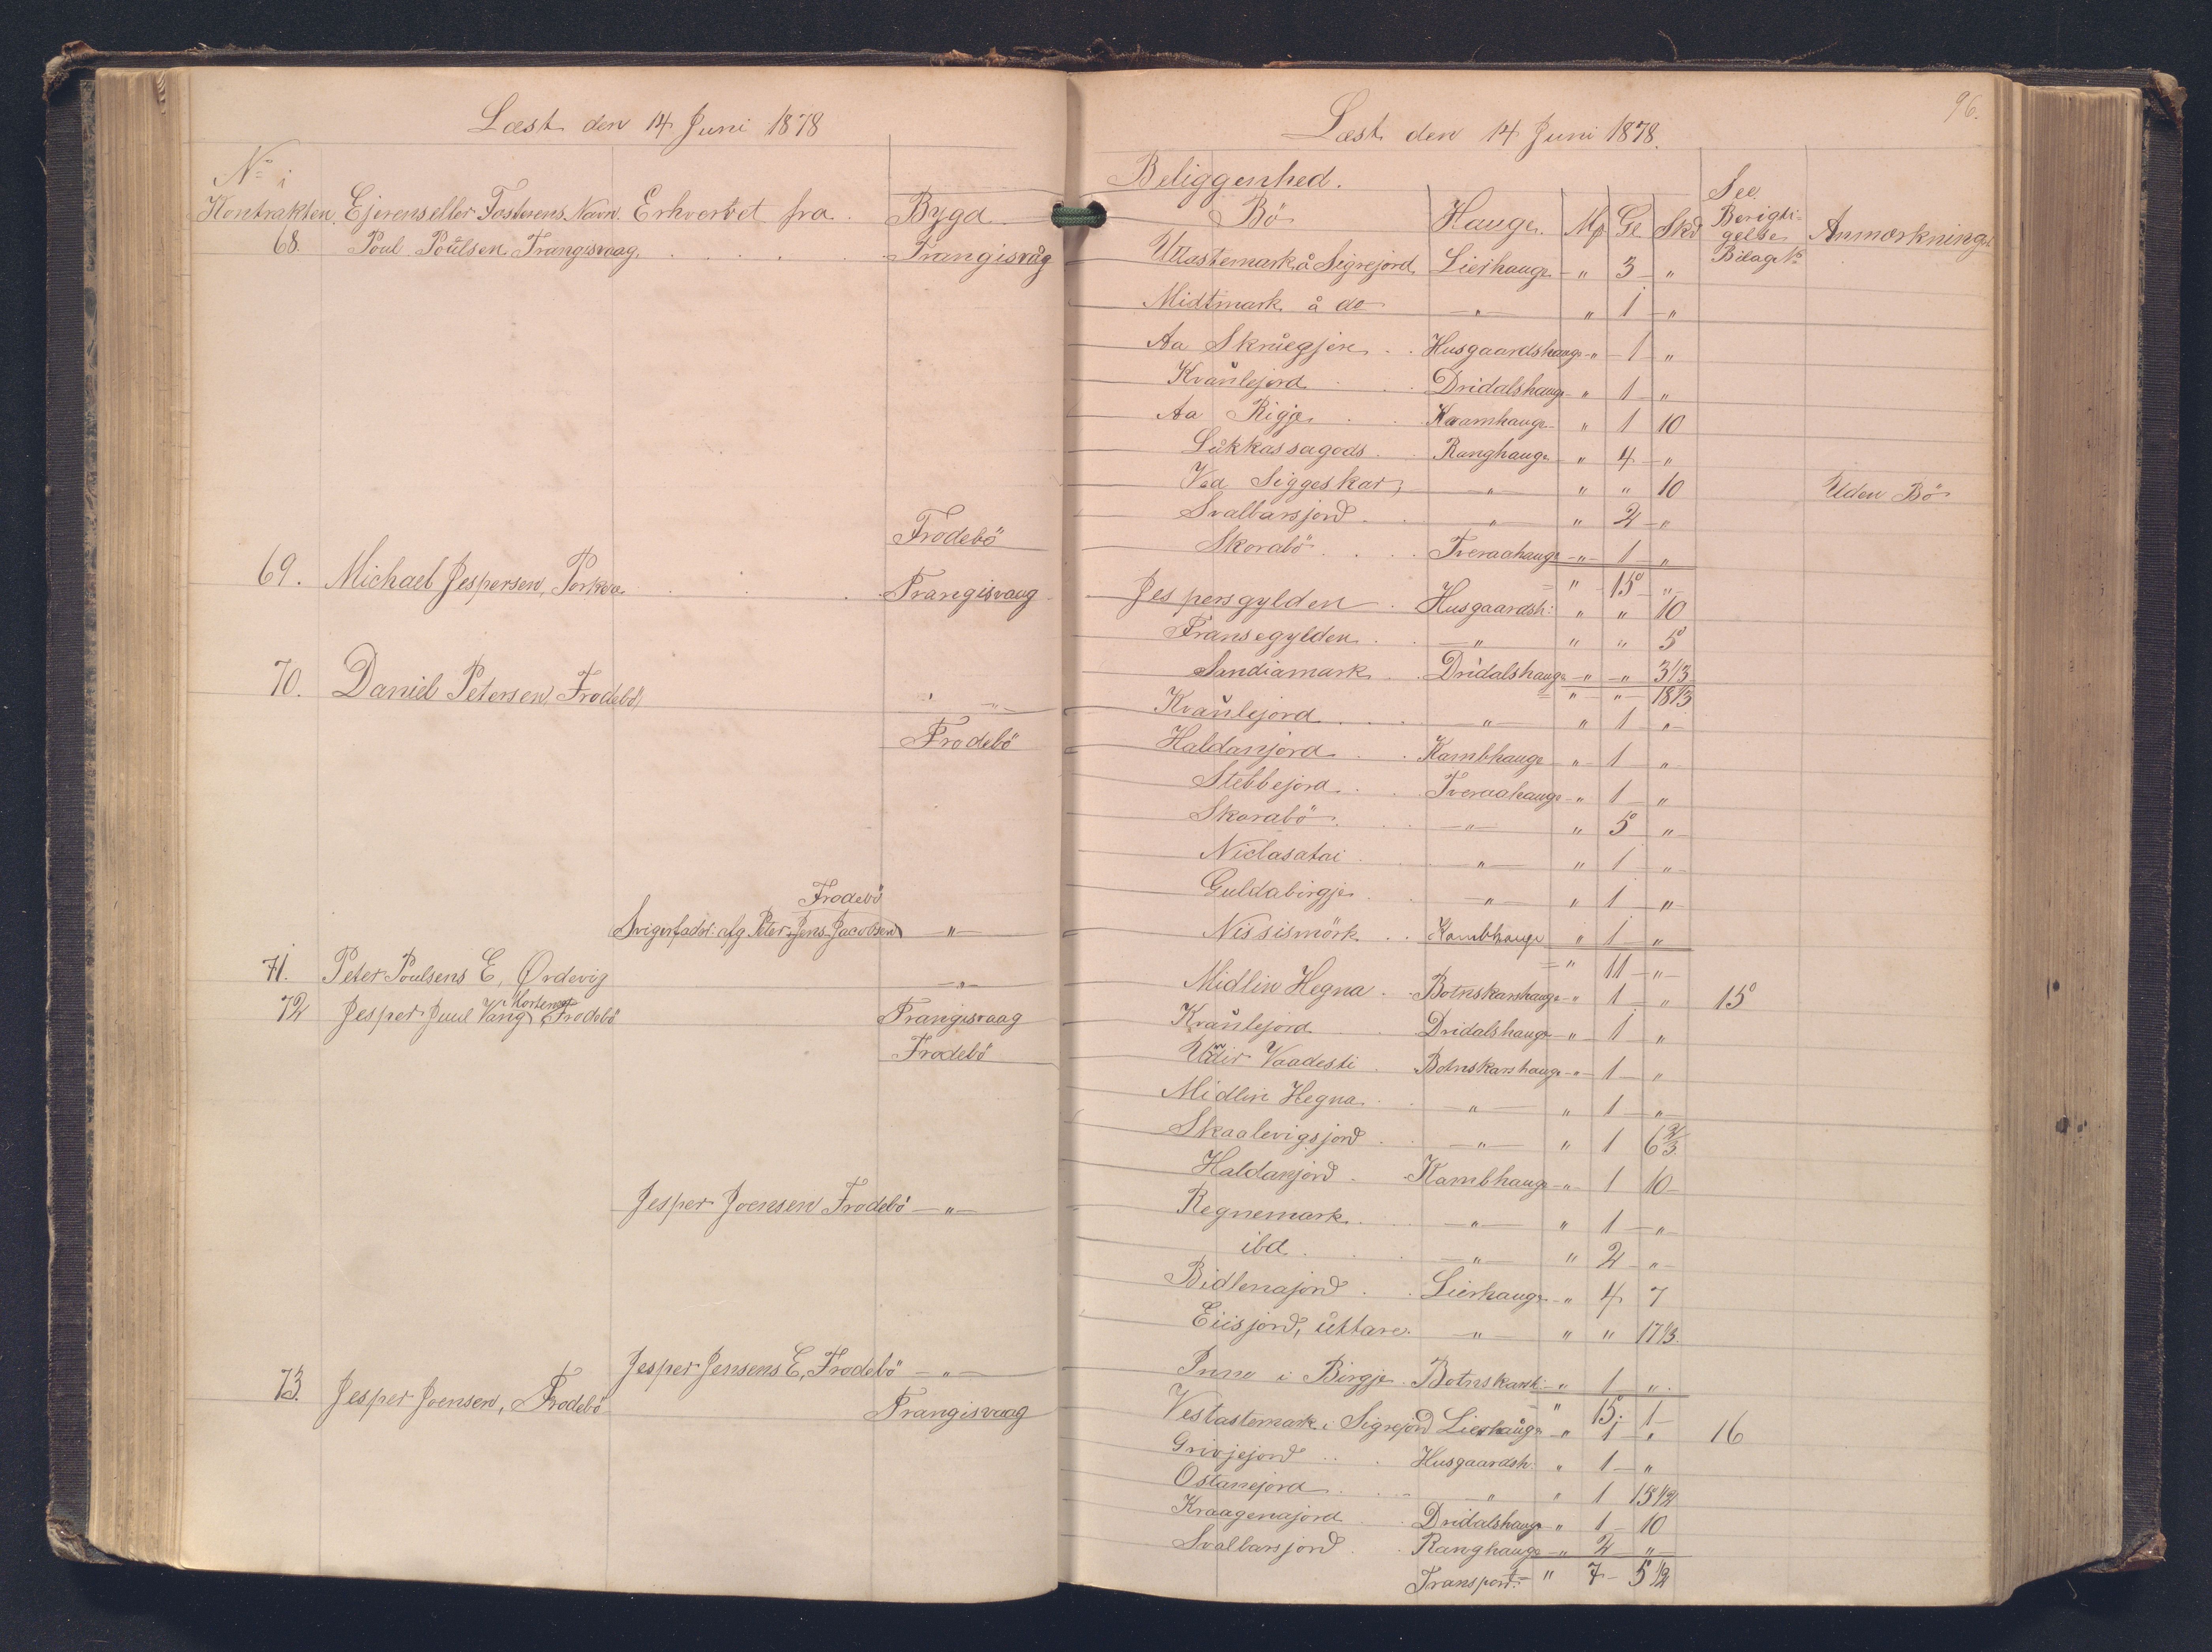 Læst den 14 Juni 1878
No i
Kontrakten. Ejerens eller Fæsterens Navn. Erhvervet fra. Bygd
68. Poul Poulsen Trangisvaag. Trangisvåg
Frodebö
69. Michael Jespersen, Porkere Trangisvaag
70. Daniel Petersen, Frodebö "
Frodebö
Frodebö
Svigerfader afg. Peter Jens Jacobsen "
71. Peter Poulsens E, Ørdevig "
72 Jesper Juul Vang Mortensen Frodebö Trangisvaag
Frodebö
Jesper Joensen Frodebö "
Jesper Jensens E, Frodebö "
73. Jesper Joensen, Frodebö Trangisvaag
96.
Læst den 14 Juni 1878.
Beliggenhed.
Bö Hauge. Mk Gl Skd See Berigtigelse Bilag No Anmærkninger
Uttastemark å Sigrejord Lierhauge " 3 "
Midtmark å do " " 1 "
Aa Skruegjere Husgaardshauge " 1 "
Kvanlejord Dridalshauge " 1 "
Aa Rigje Kvamhauge " 1 10
Lukkassagods Ranghauge " 4 "
Ved Siggeskar " " " 10 Uden Bö
Svalbarsjord " " 2 "
Skorabö Tveraahauge " 1 "
= " 15 "
Jespersgylden Husgaardsh: " " 10
Fransegylden " " " 5
Sandiamark Dridalshauge " " 3 1/3
= " " 18 1/3
Kvanlejord " " 1 "
Haldanjord Kambhauge " 1 "
Stebbejord Tveraahauge " 1 "
Skorabö " " 5 "
Niclasatai " " 1 "
Guldabirgje " " 1 "
Nissismörk Kambhauge " 1 "
= " 11 "
Midlin Hegna Botnskarshauge " 1 " 15
Kvanlejord Dridalshauge " 1 "
Undir Vaadesti Botnskarshauge " 1 "
Midlin Hegna " " 1 "
Skaalevigsjord " " 1 6 2/3
Haldanjord Kambhauge " 1 10
Regnemark " " 1 "
ibd. " " 2 "
Bidlenajord Lierhauge " 4 7
Eiisjord, uttare " " " 17 1/3
Inna i Birgje Botnskarsh: " 1 "
" 15 1
Vestastemark i Sigrejord Lierhauge " 1 " 16
Grivjejord Husgaardsh. " 1 "
Ostanejord " " 1 15 1/2
Kraagenajord Dridalshauge " 1 10
Svalbarsjord Ranghauge " 2 "
Transport = " 7 5 1/2